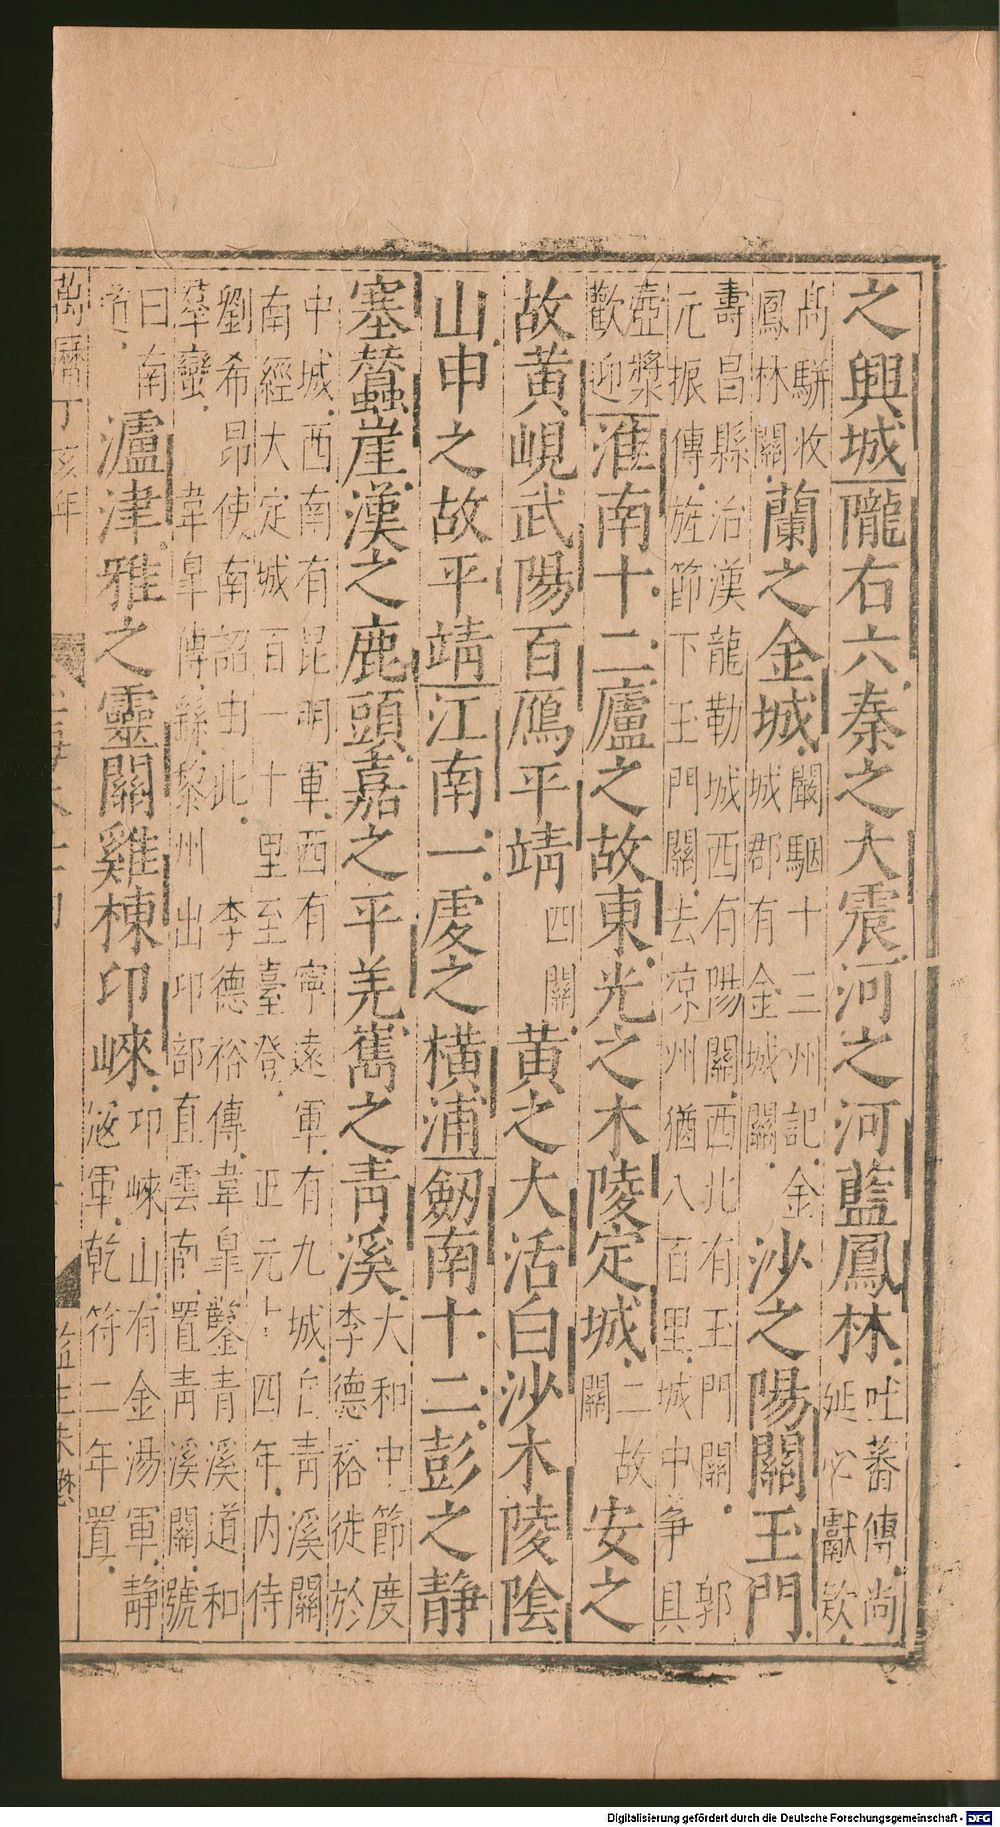 之興城隴右六秦之大震河之河藍鳳林吐蕃傳尚
延心獻欵
高駢收
鳳林關蘭之金城闞駰十三州記金
城郡有金城關沙之陽關玉門
壽昌縣治漢龍勒城西有陽關西北有玉門關郭
元振傳旌節下玉門關去涼州猶八百里城中争具
壺漿
歡迎淮南十二廬之故東光之木陵定城二故
關安之
故黄峴武陽百鴈平靖四
關黄之大活白沙木陵陰
山申之故平靖江南一虔之横浦劒南十二彭之静
塞蠶崖漢之鹿頭嘉之平羌巂之青溪大和中節度
李德裕徙於
中城西南有昆明軍西有寧遠軍有九城自青溪關
南經大定城百一十里至臺登 正元十四年内侍
劉希昂使南詔由此 李德裕傳韋皐鑿青溪道和
羣蠻 韋皐傳繇黎州出邛部直雲南置青溪關號
曰南
道瀘津雅之靈關雞棟邛崍邛崍山有金湯軍静
寇軍乾符二年置
萬曆丁亥年 監生朱懋
Digitalisierung gefördert durch die Deutsche Forschungsgemeinschaft - DFG